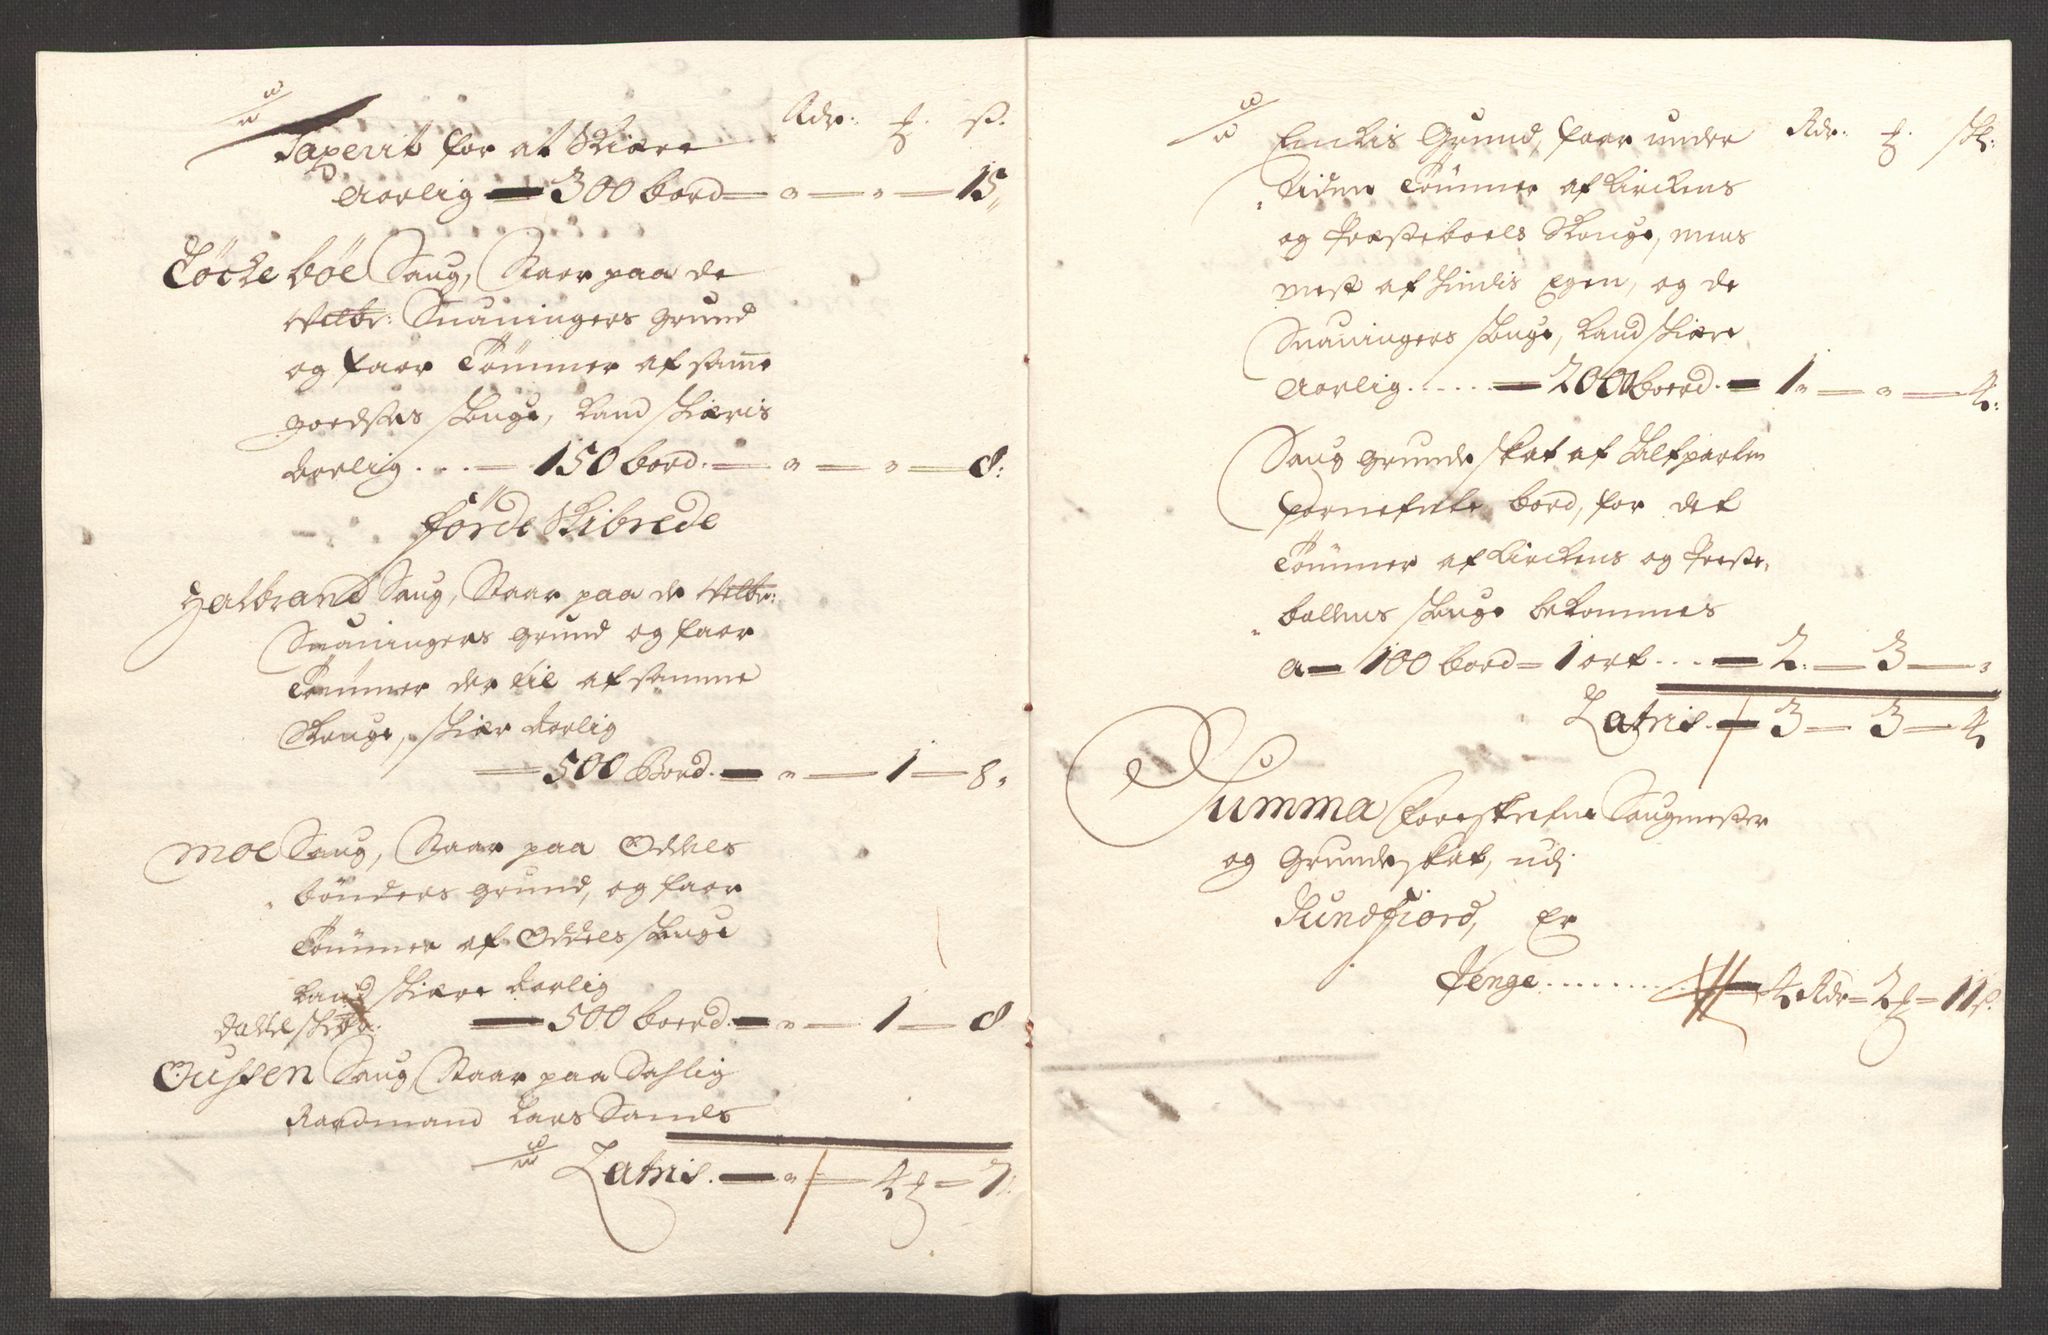 Rdr: ₰. ß.
Taxerit for at Skiære
Aarlig — 300 bord — " — " — 15
Töckebøe Saug, Staar paa de
Velbr: Svaningers grund
og faar Tömmer af samme
goedses skouge, kand skiæris
Aarlig . . . — 150 bord. — " — " — 8:
Förde Skibrede
Halbrand Saug, Staar paa de Velbr:
Svaningers grund og faar
Tömmer der til af samme
Skouge, skiær Aarlig
— 500 Bord. — " — 1 — 8"
Moe Saug, Staar paa Oddels
bönders grund, og faar
Tömmer af Oddels skouge
kand skiære Aarlig
— 500 boerd. — " — 1 — 8
Dahle skibr:
Ousten Saug, Staar paa Sahlig
Raadmand Lars
Latris. — " — 4 ₰ — 7
Rdr: ₰. sk:
Enckis Grund, faar under
Tiden Tömmer af Kirckens
og Præsteboels Skouge, mens
mest af hindis Egen, og de
Svaningers skouge, kand skiære
Aarlig . . . . . — 200 boerd. — 1" — " — 4:
Saug grunde skat af halfparten
fornefnte bord, for det
Tömmer af Kirckens og Preste-
bollens skouge bekommes
a — 100 bord — 1 ort . . . — 2: — 3 — "
Latris. — 3 — 3 — 4
Summa Foreskrefne Saugmester
og Grunde skat, udj
Sundfiord, Er
Penge . . . . . . . . . 4 Rdr — 2 ₰ — 11 ß.